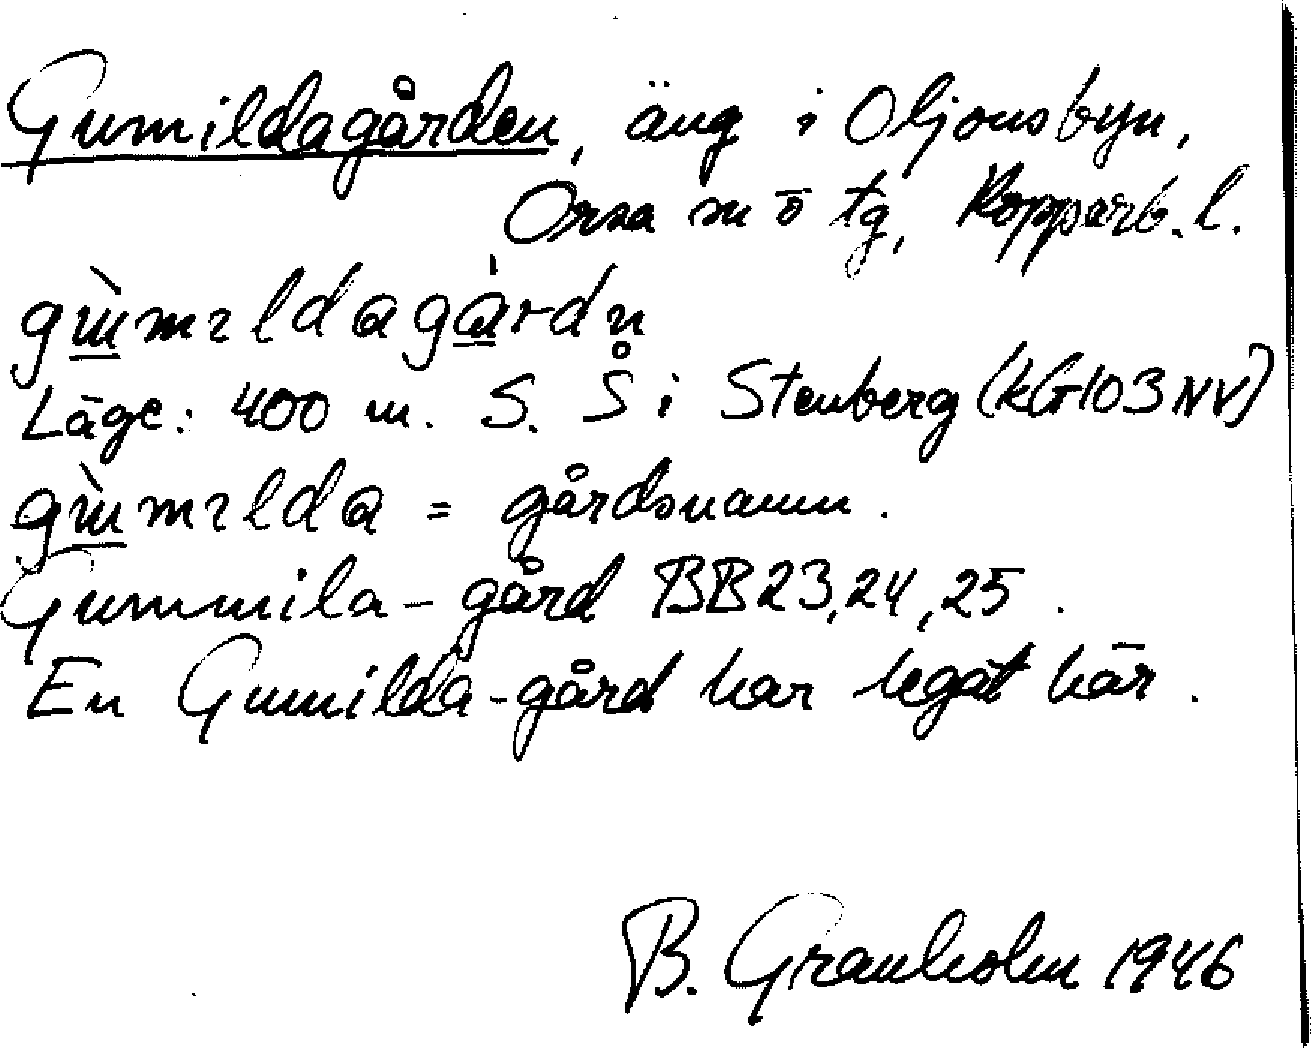 Gumildagården, äng i Oljonsbyn,
Orsa sn ö tg, Kopparb. l.
gùmɩldagárdn
Läge: 400 m. S. Å i Stenberg (kG103NV)
gùmɩlda = gårdsnamn.
Gummila-gård BB23,24,25.
En Gumilda-gård har legat här.
B. Granholm 1946